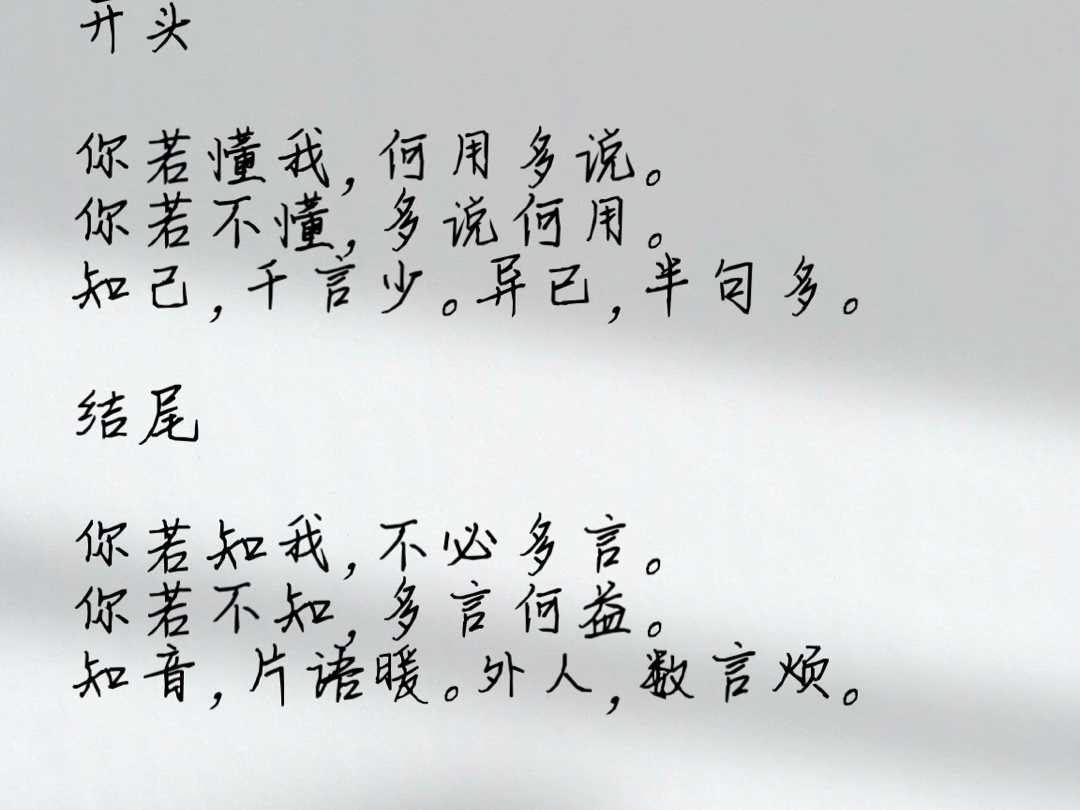 开头
你若懂我,何用多说。
你若不懂,多说何用。
知己,千言少。异己,半句多。
结尾
你若知我,不必多言。
你若不知,多言何益。
知音,片语暖。外人,数言烦。